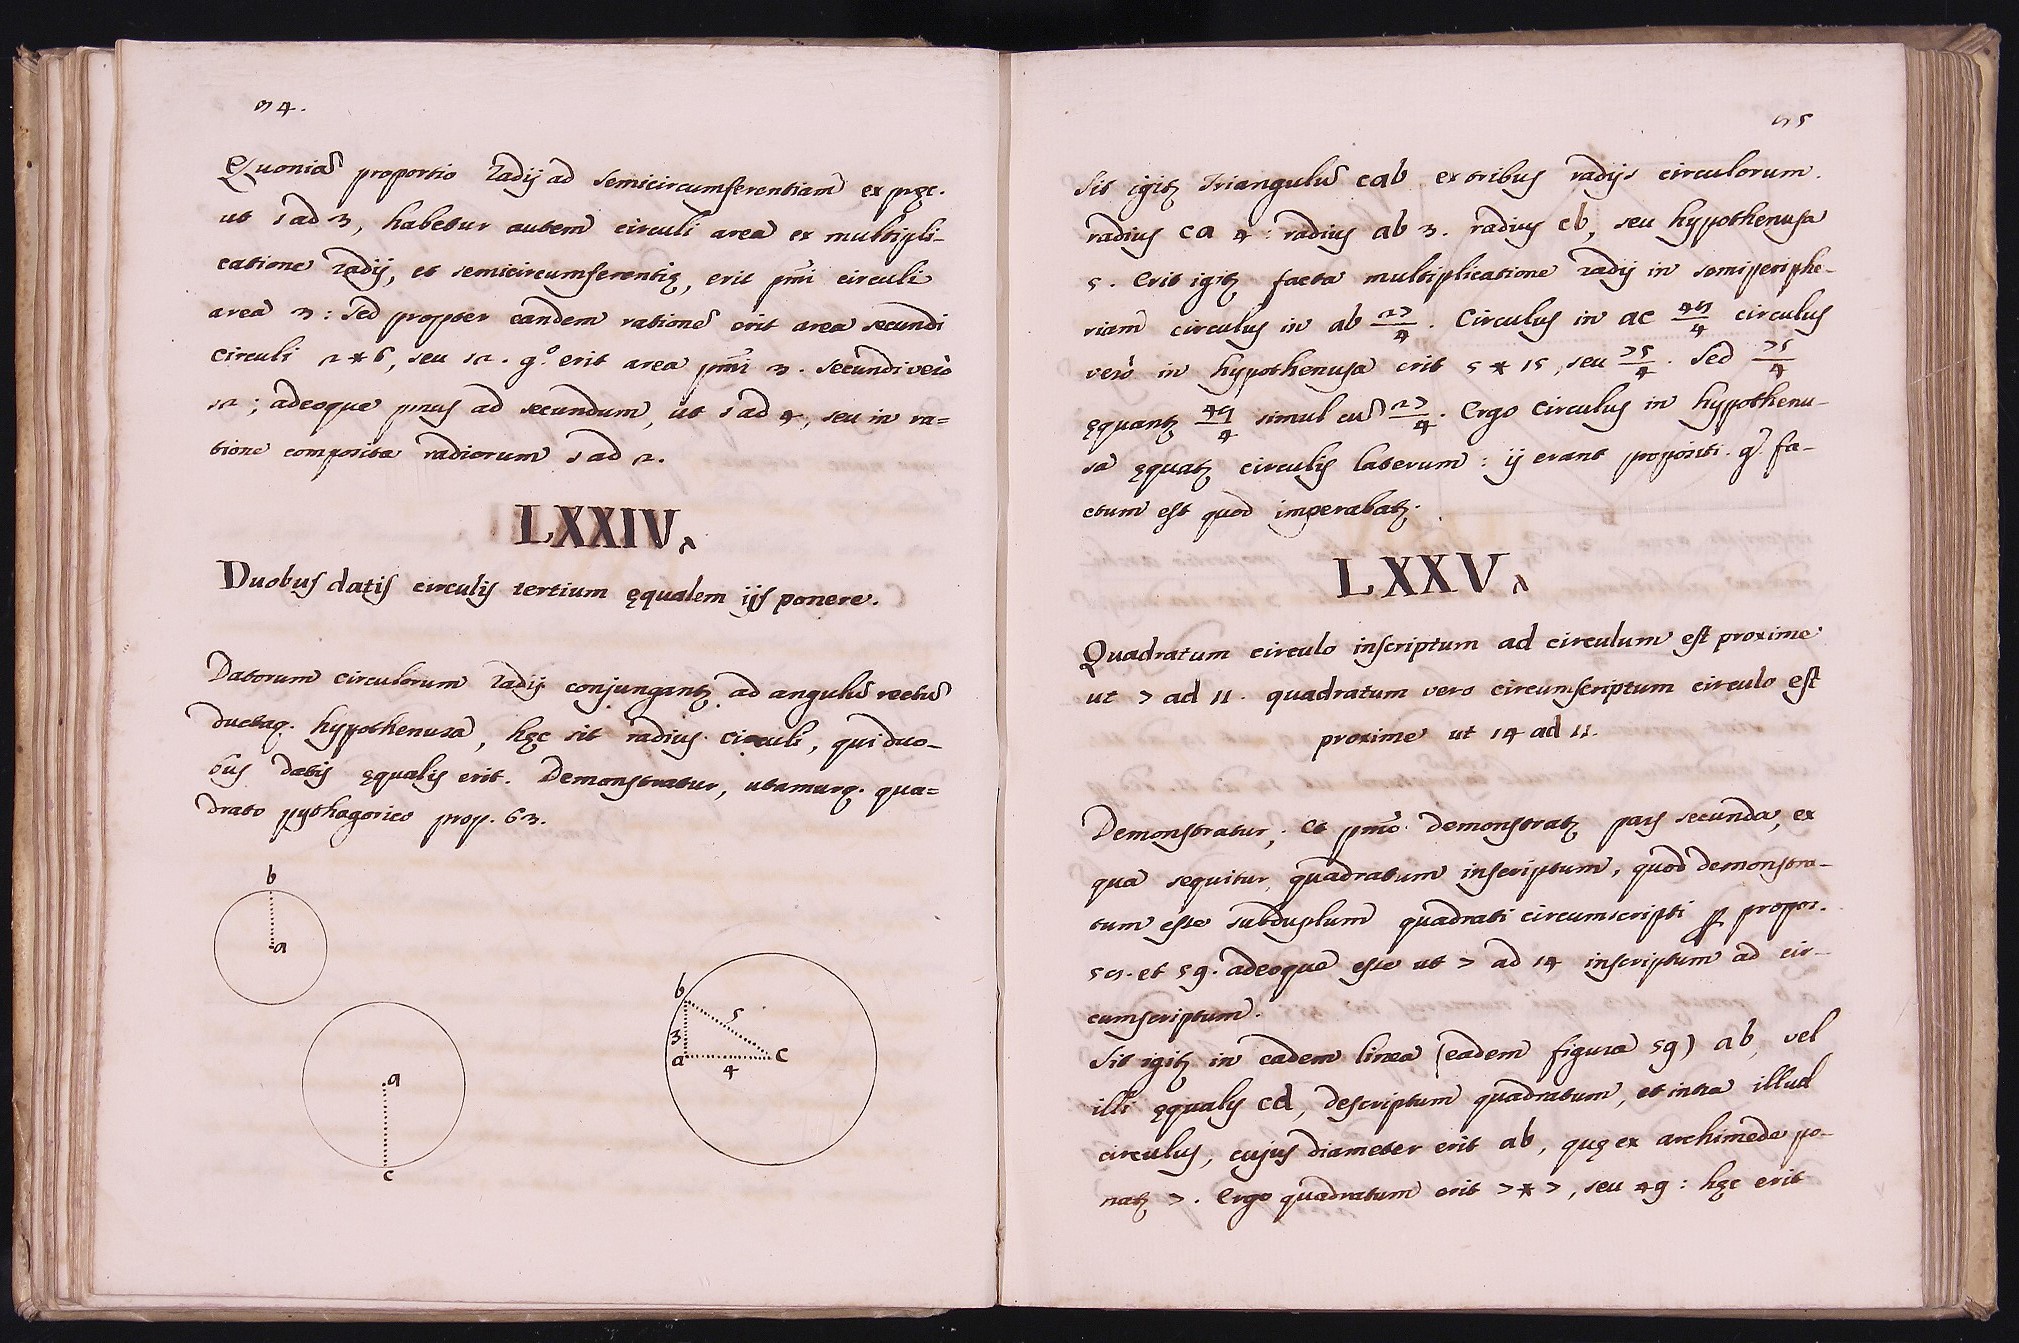 34.
Quoniã proportio Radij ad semicircumferentiam ex pręc.
ut 1 ad 3, habetur autem circuli area ex multipli-
catione Radij, et semicircumferentię, erit pmi circuli
area 3: sed propter eandem rationẽ erit area secundi
circuli 2 * 6, seu 12. gº erit area pmi 3. secundi verò
12; adeoque pmus ad secundum, ut 1 ad 4, seu in ra=
tione composita radiorum 1 ad 2.
LXXIV.
Duobus datis circulis tertium ęqualem ijs ponere.
Datorum circulorum Radij conjungantʒ ad angulũ rectũ
ductaq. hypothenusa, hęc sit radius circuli, qui duo-
bus datis ęqualis erit. Demonstratur, utamurq. qua=
drato pythagorico prop. 63.
b
a
a
c
b
5
3
a
c
4
35
Sit igitʒ Triangulũ cab ex tribus radijs circulorum.
radius ca 4: radius ab 3. radius cb, seu hypothenusa
5. Erit igitʒ facta multiplicatione Radij in semiperiphe-
riam circulus in ab 27/4. Circulus in ac 49/4 circulus
verò in hypothenusa erit 5 * 15, seu 75/4. Sed 75/4
ęquantʒ 49/4 simul cũ 27/4. Ergo circulus in hypothenu-
sa ęquatʒ circulis laterum: ij erant propositi. gº. fa-
ctum est quod imperabatʒ.
LXXV.
Quadratum circulo inscriptum ad circulum est proxime
ut 7 ad 11. quadratum vero circumscriptum circulo est
proxime ut 14 ad 11.
Demonstratur; Et pmo demonstratʒ pars secunda, ex
qua sequitur, quadratum inscriptum, quod demonstra-
tum este subduplum quadrati circumscripti ꝑ propos.
53. et 59. adeoque este ut 7 ad 14 inscriptum ad cir-
cumscriptum.
Sit igitʒ in eadem linea (eadem figura 59) ab, vel
illi ęqualis cd, descriptum quadratum, et intra illud
circulus, cujus diameter erit ab, quę ex archimede po-
natʒ 7. Ergo quadratum erit 7 * 7, seu 49: hęc erit